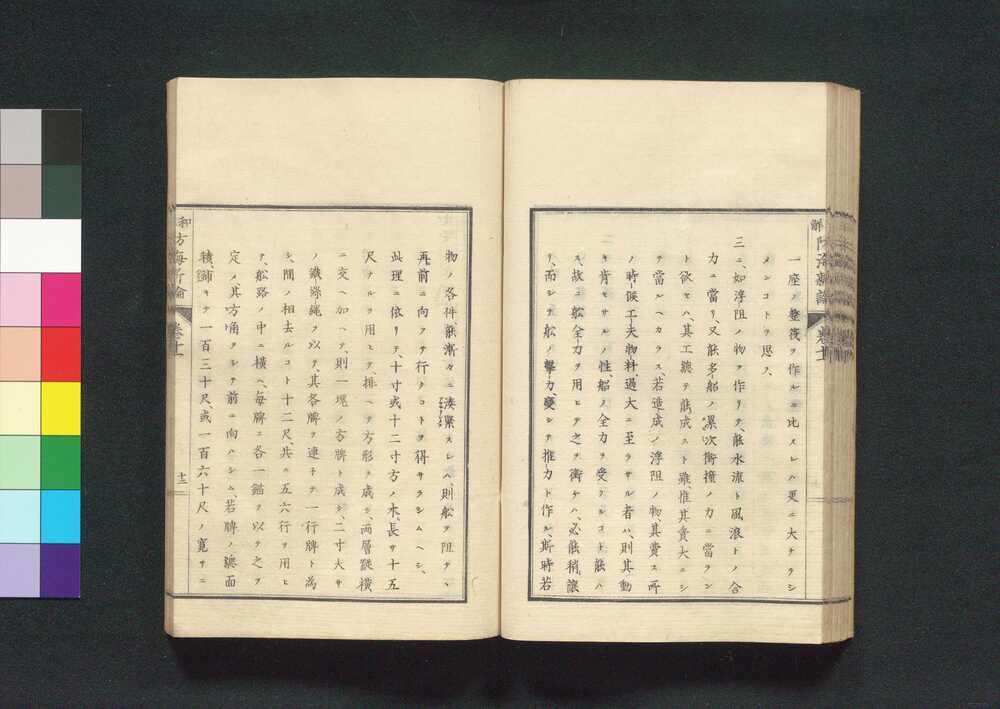 一座ノ整筏ヲ作ルニ比スレハ更ニ大ナラシ
メンコトヲ思フ、
三、如浮阻ノ物ヲ作リテ、能水流ト風浪トノ合
力ニ當リ、又能多船ノ累次衝撞ノカニ當ラン
ト欲セハ、其工總テ能成スト雖、惟其費大ニシ
テ當ルヘカラス、若造成ノ浮阻ノ物、其費ス所
ノ時候工夫物料、過大ニ至ラサル者ハ、則其動
キ肯セサルノ性、船ノ全力ヲ受クルコト能ハ
ス、故ニ船全力ヲ用ヒテ之ヲ衝ケハ、必能稍讓
リ、而シテ船ノ撃力、變シテ推力ト作ル、斯時若
物ノ各件能漸々ニ湊緊スレハ、則船ヲ阻テヽ
再前ニ向フテ行クコトヲ得サラシムヘシ、
此理ニ依リテ、十寸或十二寸方ノ木、長サ十五
尺ナルヲ用ヒテ、排ヘテ方形ヲ成シ、両層縦横
ニ交ヘ加ヘテ、則一塊ノ方牌ト成シ、二寸大サ
ノ鐵絲繩ヲ以テ、其各牌ヲ連子テ一行牌ト為
シ、間ノ相去ルコト十二尺、共ニ五六行ヲ用ヒ
テ、船路ノ中ニ横ヘ、毎牌ニ各一錨ヲ以テ之ヲ
定メ、其方角ヲシテ前ニ向ハシム、若牌ノ總面
積、鋪キテ一百三十尺、或一百六十尺ノ寛サニ
防海新論
巻十一
十三